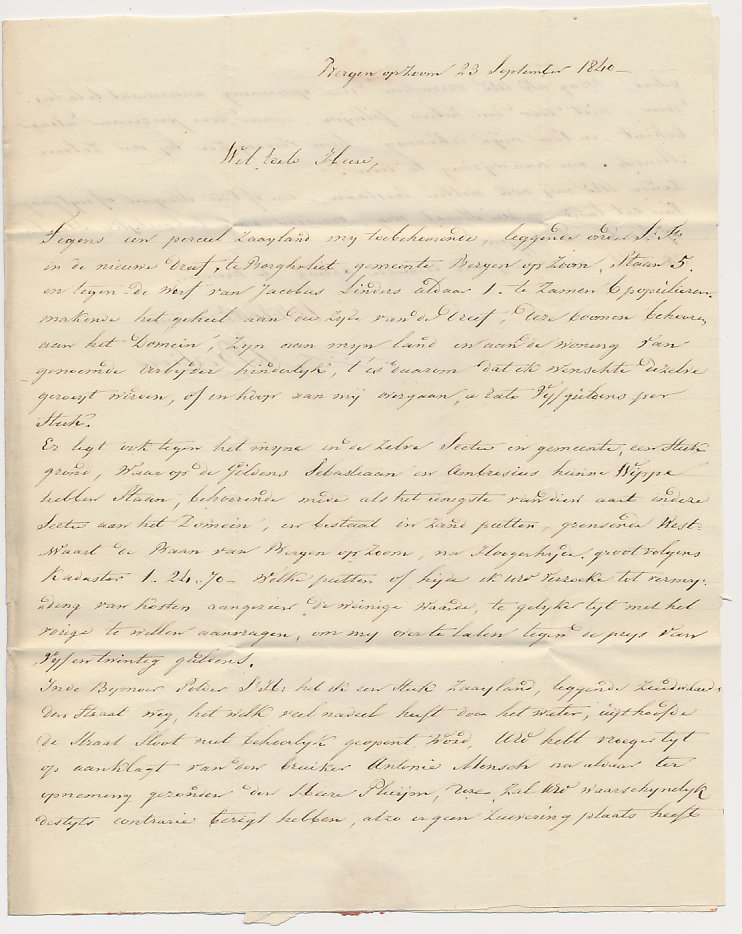 Bergen op Zoom 23 September 1840 -
Wel Edele Heere,
Tegens een perceel Zaayland my toebehoorende, leggende
in de nieuwe Dreef, te Borghvliet, gemeente Bergen op Zoom, Staan 5.
en tegen de Werf van Jacobus Linders aldaar 1. te Zamen 6 popelieren
makende het geheel aan die Zyde van de Dreef; deze boomen behooren
aan het Domein, Zyn aan myn land en aan de woning van
genoemde hinderlyk, t'is daarom dat ik wenschte dezelve
geroeyt wierden, of in koop aan mij overgaan, a rato Vyf guldens per
Stuk.
Er legt ook tegen het myne in de Zelve Sectie en gemeente, een Stuk
grond, Waar op de Gildens Sebastiaan en Ambrosius hunne Wippe
hebben Staan, behoorende mede als het eenigste van dien aart in deze
Sectie aan het Domein, en bestaat in Zand putten, grensende West-
waart de Baan van Bergen op Zoom, na Hoogerheyde, groot volgens
Kadaster 1. 24. 70 - Welke putten of ik UW verzoeke tot vermy-
ding van kosten aangezien de weinige waarde, te gelyker tyt met het
vorige te willen aanvragen, om my over te laten tegen de prys van
Vyf en twintig guldens.
In de Bymoer Polder heb ik een Stuk Zaayland, leggende
den Straat weg, het welk veel nadeel heeft door het water, uythoofde
de Straat Sloot niet behoorlyk geopent word, UW hebt vroeger tyt
op aanklagt van den bruiker Antonie Mensch na aldaar ter
opneming gezonden den Heere Pheijm, deze Zal UW waarschynelyk
destyts contrarie berigt hebben, alzo er geen Zuivering plaats heeft